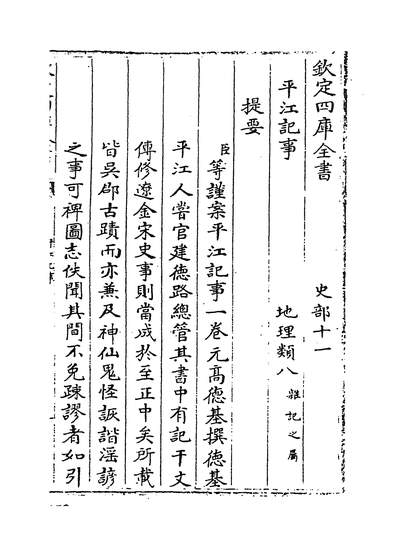 欽定四庫全書　史部十一
平江記事　地理類八雜記之屬
提要
臣等謹案平江記事一卷元高德基撰德基
平江人嘗官建德路總管其書中有記干文
傳修遼金宋史事則當成於至正中矣所載
皆吳郡古蹟而亦兼及神仙鬼怪詼諧謡諺
之事可裨圖志佚聞其間不免疎謬者如引